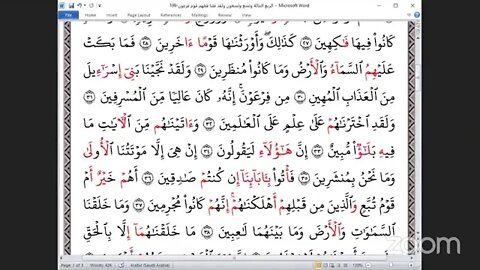 الربع المائة وتسع وتسعون ولقد فتنا قبلهم قوم فرعون-199 - Microsoft Word
File Home Insert Page Layout References Mailings Review View Acrobat
كَانُوا۟ فِيهَا فَـٰكِهِينَ ٢٧ كَذَٰلِكَ ۖ وَأَوْرَثْنَـٰهَا قَوْمًا ءَاخَرِينَ ٢٨ فَمَا بَكَتْ
عَلَيْهِمُ السَّمَآءُ وَالْأَرْضُ وَمَا كَانُوا۟ مُنظَرِينَ ٢٩ وَلَقَدْ نَجَّيْنَا بَنِىٓ إِسْرَٰٓءِيلَ
مِنَ الْعَذَابِ الْمُهِينِ ٣٠ مِن فِرْعَوْنَ ۚ إِنَّهُۥ كَانَ عَالِيًا مِّنَ الْمُسْرِفِينَ
٣١ وَلَقَدِ اخْتَرْنَـٰهُمْ عَلَىٰ عِلْمٍ عَلَى الْعَـٰلَمِينَ ٣٢ وَءَاتَيْنَـٰهُم مِّنَ الْأَيَـٰتِ مَا
فِيهِ بَلَـٰٓؤٌا۟ مُّبِينٌ ٣٣ إِنَّ هَـٰٓؤُلَآءِ لَيَقُولُونَ ٣٤ إِنْ هِىَ إِلَّا مَوْتَتُنَا الْأُولَىٰ
وَمَا نَحْنُ بِمُنشَرِينَ ٣٥ فَأْتُوا۟ بِـَٔابَآئِنَآ إِن كُنتُمْ صَـٰدِقِينَ ٣٦ أَهُمْ خَيْرٌ أَمْ
قَوْمُ تُبَّعٍ وَالَّذِينَ مِن قَبْلِهِمْ ۚ أَهْلَكْنَـٰهُمْ ۖ إِنَّهُمْ كَانُوا۟ مُجْرِمِينَ ٣٧ وَمَا خَلَقْنَا
السَّمَـٰوَٰتِ وَالْأَرْضَ وَمَا بَيْنَهُمَا لَـٰعِبِينَ ٣٨ مَا خَلَقْنَـٰهُمَآ إِلَّا بِالْحَقِّ
zoom
Page: 1 of 3 Words: 426 Arabic (Saudi Arabia) 120%